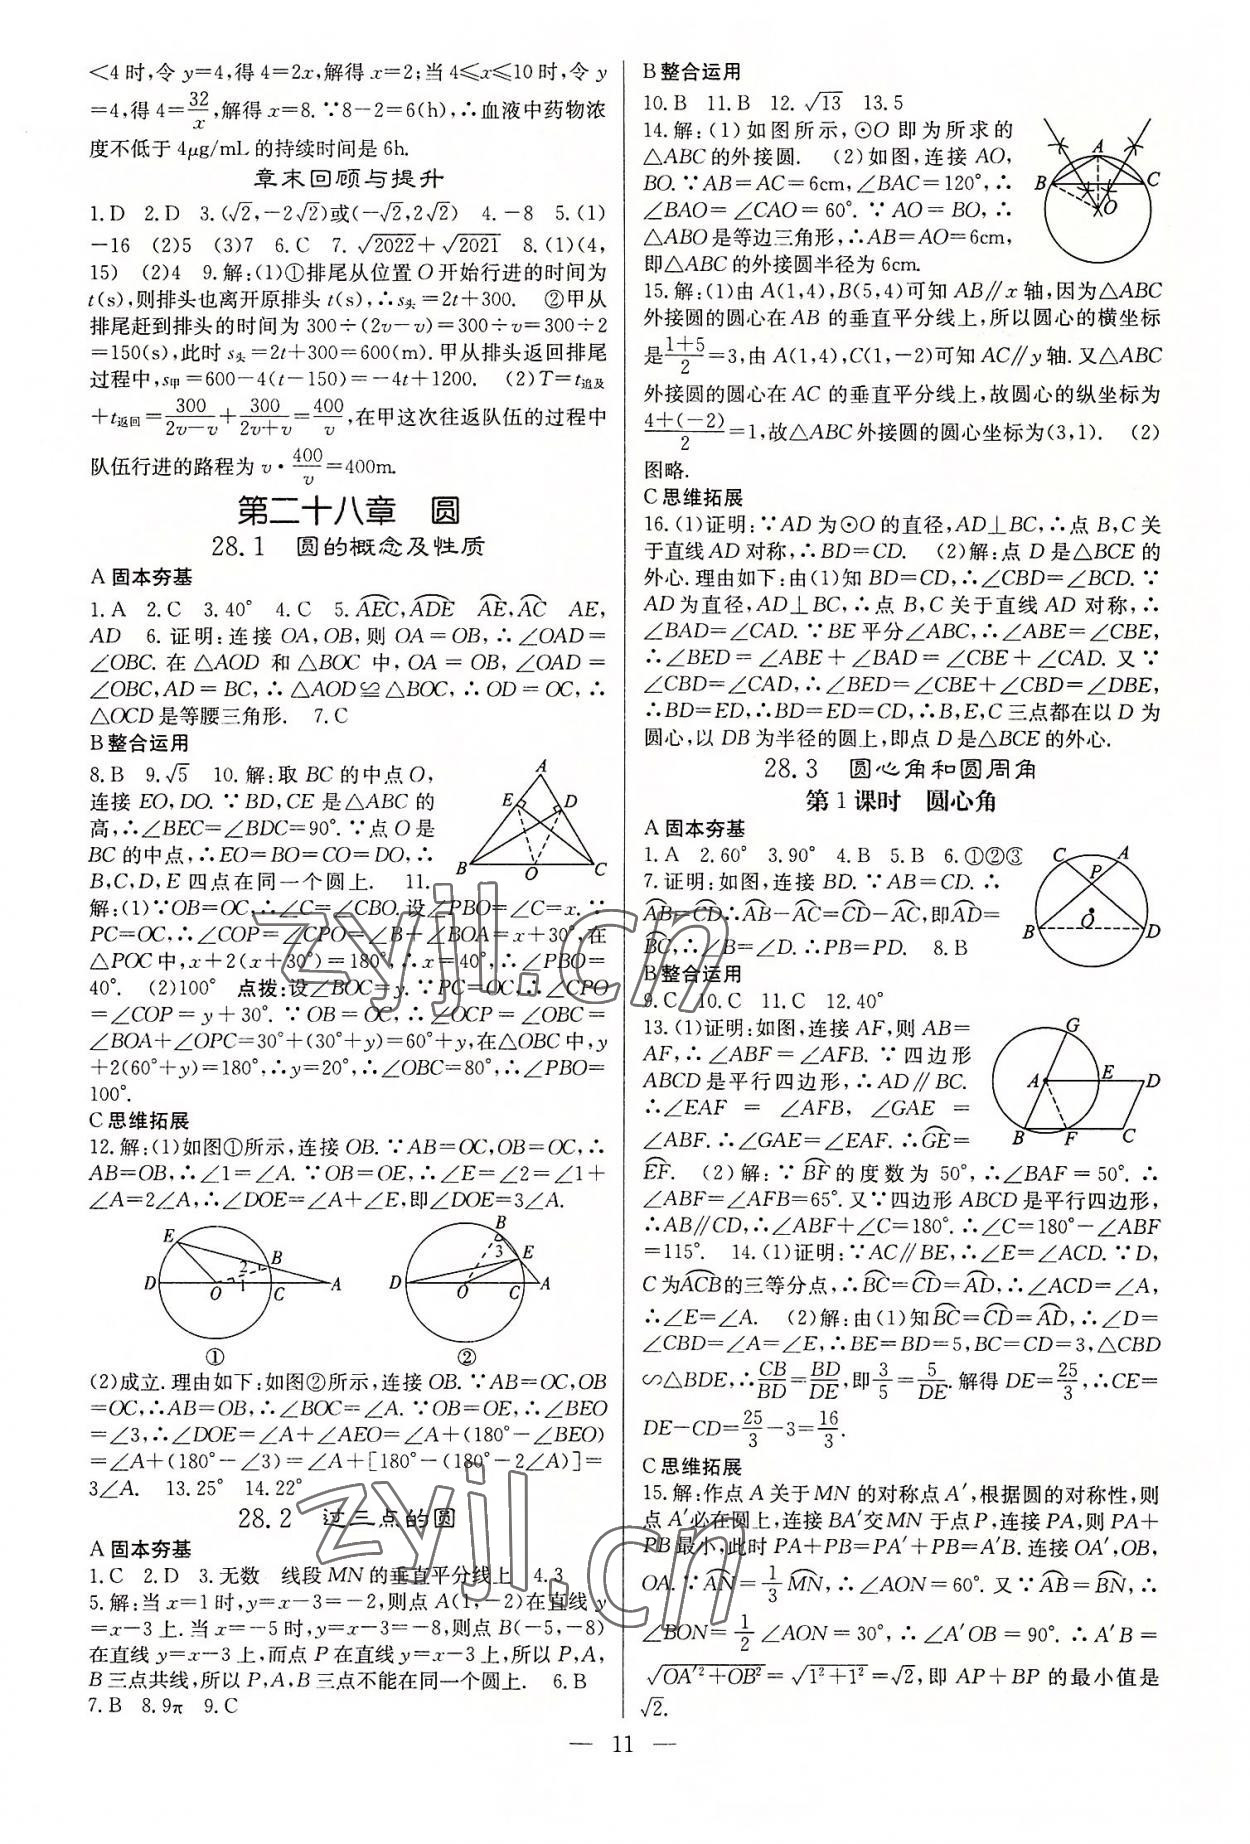 <4时,令 y=4,得 4=2x,解得 x=2;当 4≤x≤10 时,令 y
=4,得 4=32/x,解得 x=8.∵8-2=6(h),∴血液中药物浓
度不低于 4μg/mL 的持续时间是 6h.
章末回顾与提升
1.D 2.D 3.(√2,-2√2)或(-√2,2√2) 4.-8 5.(1)
-16 (2)5 (3)7 6.C 7.√2022+√2021 8.(1)(4,
15) (2)4 9.解:(1)①排尾从位置 O 开始行进的时间为
t(s),则排头也离开原排头 t(s),∴s头=2t+300. ②甲从
排尾赶到排头的时间为 300÷(2v-v)=300÷v=300÷2
=150(s),此时 s头=2t+300=600(m).甲从排头返回排尾
过程中,s甲=600-4(t-150)=-4t+1200. (2)T=t追及
+t返回=300/(2v-v)+300/(2v+v)=400/v,在甲这次往返队伍的过程中
队伍行进的路程为 v·400/v=400m.
第二十八章 圆
28.1 圆的概念及性质
A 固本夯基
1.A 2.C 3.40° 4.C 5.⌒AEC,⌒ADE ⌒AE,⌒AC AE,
AD 6.证明:连接 OA,OB,则 OA=OB,∴∠OAD=
∠OBC.在 △AOD 和 △BOC 中,OA=OB,∠OAD=
∠OBC,AD=BC,∴△AOD≌△BOC,∴OD=OC,∴
△OCD 是等腰三角形. 7.C
B 整合运用
8.B 9.√5 10.解:取 BC 的中点 O,
连接 EO,DO.∵BD,CE 是△ABC 的
高,∴∠BEC=∠BDC=90°.∵点 O 是
BC 的中点,∴EO=BO=CO=DO,∴
B,C,D,E 四点在同一个圆上. 11.
A
E
D
B
O
C
解:(1)∵OB=OC,∴∠C=∠CBO.设∠PBO=∠C=x.∵
PC=OC,∴∠COP=∠CPO=∠B+∠BOA=x+30°,在
△POC 中,x+2(x+30°)=180°,∴x=40°,∴∠PBO=
40°. (2)100° 点拨:设∠BOC=y.∵PC=OC,∴∠CPO
=∠COP=y+30°.∵OB=OC,∴∠OCP=∠OBC=
∠BOA+∠OPC=30°+(30°+y)=60°+y,在△OBC 中,y
+2(60°+y)=180°,∴y=20°,∴∠OBC=80°,∴∠PBO=
100°.
C 思维拓展
12.解:(1)如图①所示,连接 OB.∵AB=OC,OB=OC,∴
AB=OB,∴∠1=∠A.∵OB=OE,∴∠E=∠2=∠1+
∠A=2∠A,∴∠DOE=∠A+∠E,即∠DOE=3∠A.
E
B
2
1
D
O
C
A
①
B
3
E
D
O
C
A
②
(2)成立.理由如下:如图②所示,连接 OB.∵AB=OC,OB
=OC,∴AB=OB,∴∠BOC=∠A.∵OB=OE,∴∠BEO
=∠3,∴∠DOE=∠A+∠AEO=∠A+(180°-∠BEO)
=∠A+(180°-∠3)=∠A+[180°-(180°-2∠A)]=
3∠A. 13.25° 14.22°
28.2 过三点的圆
A 固本夯基
1.C 2.D 3.无数 线段 MN 的垂直平分线上 4.3
5.解:当 x=1 时,y=x-3=-2,则点 A(1,-2)在直线 y
=x-3 上.当 x=-5 时,y=x-3=-8,则点 B(-5,-8)
在直线 y=x-3 上,而点 P 在直线 y=x-3 上,所以 P,A,
B 三点共线,所以 P,A,B 三点不能在同一个圆上. 6.B
7.B 8.9π 9.C
B 整合运用
10.B 11.B 12.√13 13.5
14.解:(1)如图所示,⊙O 即为所求的
△ABC 的外接圆. (2)如图,连接 AO,
BO.∵AB=AC=6cm,∠BAC=120°,∴
∠BAO=∠CAO=60°.∵AO=BO,∴
△ABO 是等边三角形,∴AB=AO=6cm,
即△ABC 的外接圆半径为 6cm.
A
B
C
O
15.解:(1)由 A(1,4),B(5,4)可知 AB∥x 轴,因为△ABC
外接圆的圆心在 AB 的垂直平分线上,所以圆心的横坐标
是(1+5)/2=3,由 A(1,4),C(1,-2)可知 AC∥y 轴.又△ABC
外接圆的圆心在 AC 的垂直平分线上,故圆心的纵坐标为
(4+(-2))/2=1,故△ABC 外接圆的圆心坐标为(3,1). (2)
图略.
C 思维拓展
16.(1)证明:∵AD 为⊙O 的直径,AD⊥BC,∴点 B,C 关
于直线 AD 对称,∴BD=CD. (2)解:点 D 是△BCE 的
外心.理由如下:由(1)知 BD=CD,∴∠CBD=∠BCD.∵
AD 为直径,AD⊥BC,∴点 B,C 关于直线 AD 对称,∴
∠BAD=∠CAD.∵BE 平分∠ABC,∴∠ABE=∠CBE,
∴∠BED=∠ABE+∠BAD=∠CBE+∠CAD.又∵
∠CBD=∠CAD,∴∠BED=∠CBE+∠CBD=∠DBE,
∴BD=ED,∴BD=ED=CD,∴B,E,C 三点都在以 D 为
圆心,以 DB 为半径的圆上,即点 D 是△BCE 的外心.
28.3 圆心角和圆周角
第 1 课时 圆心角
A 固本夯基
1.A 2.60° 3.90° 4.B 5.B 6.①②③
7.证明:如图,连接 BD.∵AB=CD.∴
⌒AB=⌒CD∴⌒AB-⌒AC=⌒CD-⌒AC,即⌒AD=
⌒BC,∴∠B=∠D.∴PB=PD. 8.B
C
A
P
O
B
D
B 整合运用
9.C 10.C 11.C 12.40°
13.(1)证明:如图,连接 AF,则 AB=
AF,∴∠ABF=∠AFB.∵四边形
ABCD 是平行四边形,∴AD∥BC.
∴∠EAF=∠AFB,∠GAE=
∠ABF.∴∠GAE=∠EAF.∴⌒GE=
G
A
E
D
B
F
C
⌒EF. (2)解:∵⌒BF的度数为 50°,∴∠BAF=50°.∴
∠ABF=∠AFB=65°.又∵四边形 ABCD 是平行四边形,
∴AB∥CD,∴∠ABF+∠C=180°.∴∠C=180°-∠ABF
=115°. 14.(1)证明:∵AC∥BE,∴∠E=∠ACD.∵D,
C 为⌒ACB的三等分点,∴⌒BC=⌒CD=⌒AD,∴∠ACD=∠A,
∴∠E=∠A. (2)解:由(1)知⌒BC=⌒CD=⌒AD,∴∠D=
∠CBD=∠A=∠E,∴BE=BD=5,BC=CD=3,△CBD
∽△BDE,∴CB/BD=BD/DE,即3/5=5/DE.解得 DE=25/3,∴CE=
DE-CD=25/3-3=16/3.
C 思维拓展
15.解:作点 A 关于 MN 的对称点 A′,根据圆的对称性,则
点 A′必在圆上,连接 BA′交 MN 于点 P,连接 PA,则 PA+
PB 最小,此时 PA+PB=PA′+PB=A′B.连接 OA′,OB,
OA.∵⌒AN=1/3⌒MN,∴∠AON=60°.又∵⌒AB=⌒BN,∴
∠BON=1/2∠AON=30°,∴∠A′OB=90°.∴A′B=
√(OA′²+OB²)=√(1²+1²)=√2,即 AP+BP 的最小值是
√2.
— 11 —
zyjl.cn
zyjl.cn